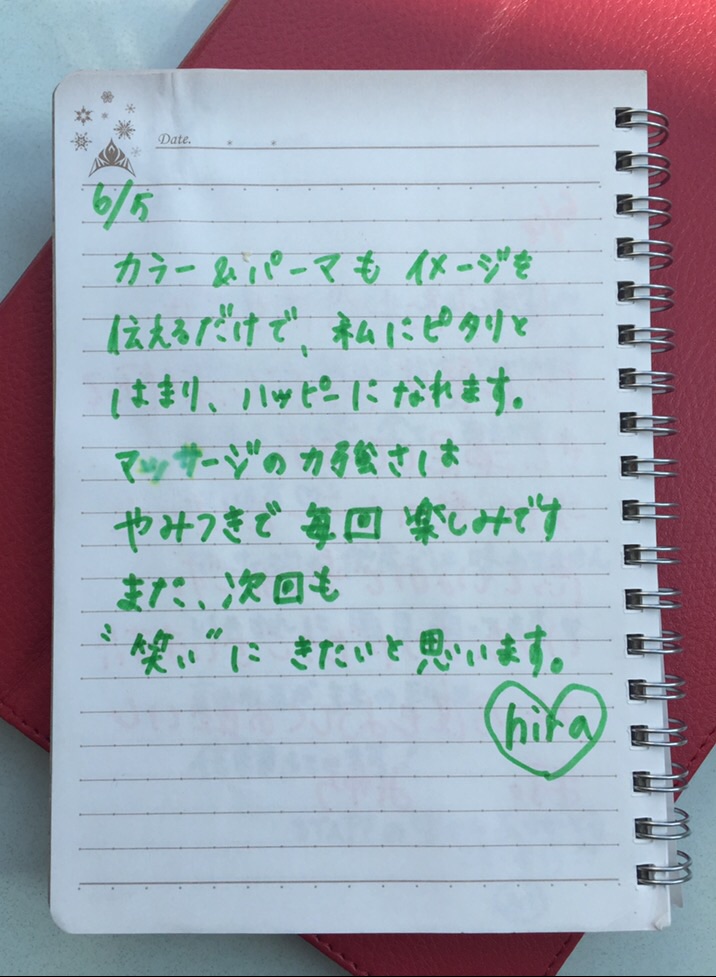 Date.
6/5
カラー&パーマも イメージを
伝えるだけで、私にピタリと
はまり、ハッピーになれます。
マッサージの力強さは
やみつきで 毎回 楽しみです
また、次回も
〝笑い〟に きたいと思います。
hira